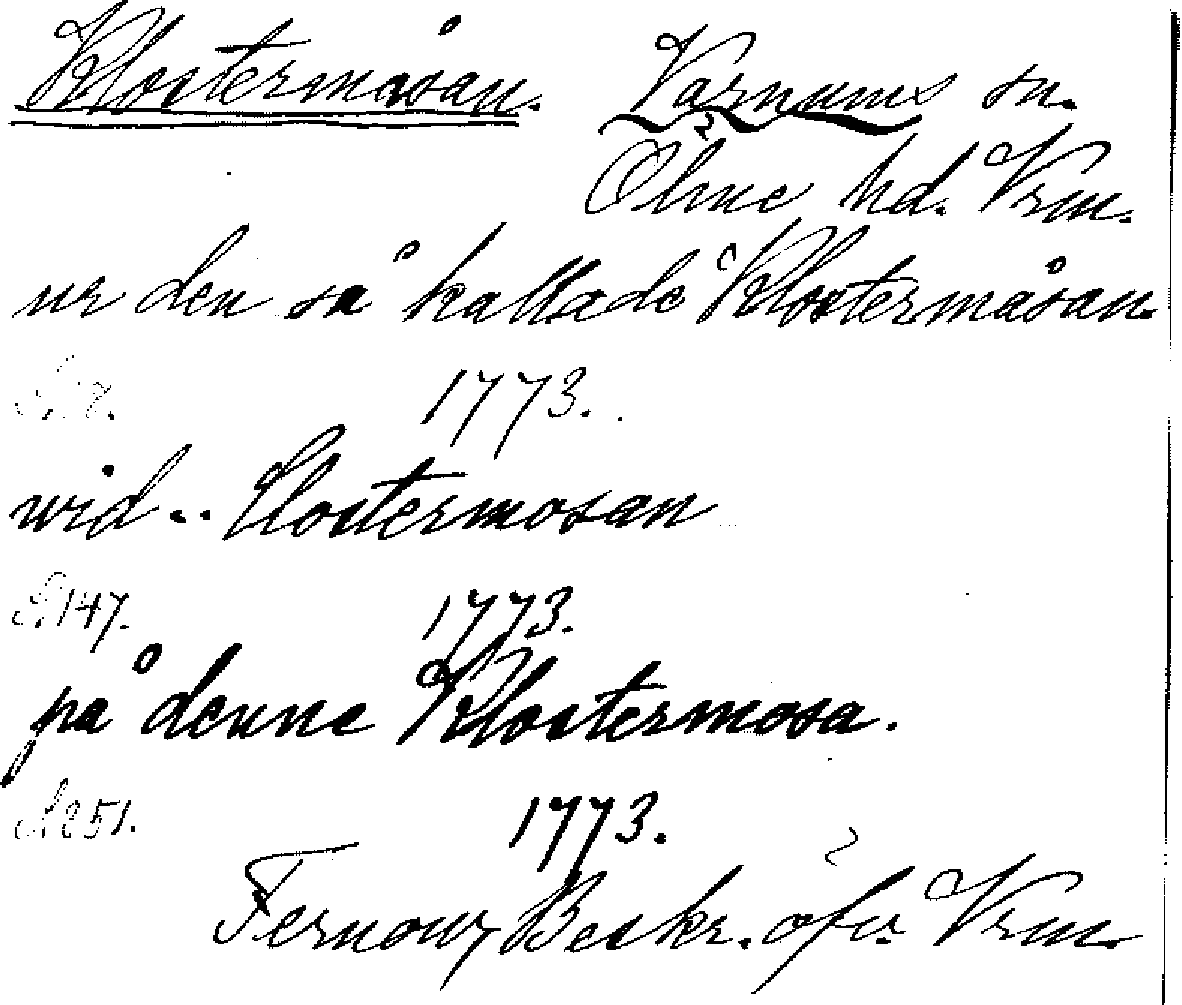 Klostermåsan. Varnums sn.
Ölme hd. Vrm.
ur den så kallade Klostermåsan.
1773.
wid .. Clostermosan
S. 147. 1773.
på denne Klostermosa.
S. 251. 1773.
Fernow, Beskr. öfver Vrm.